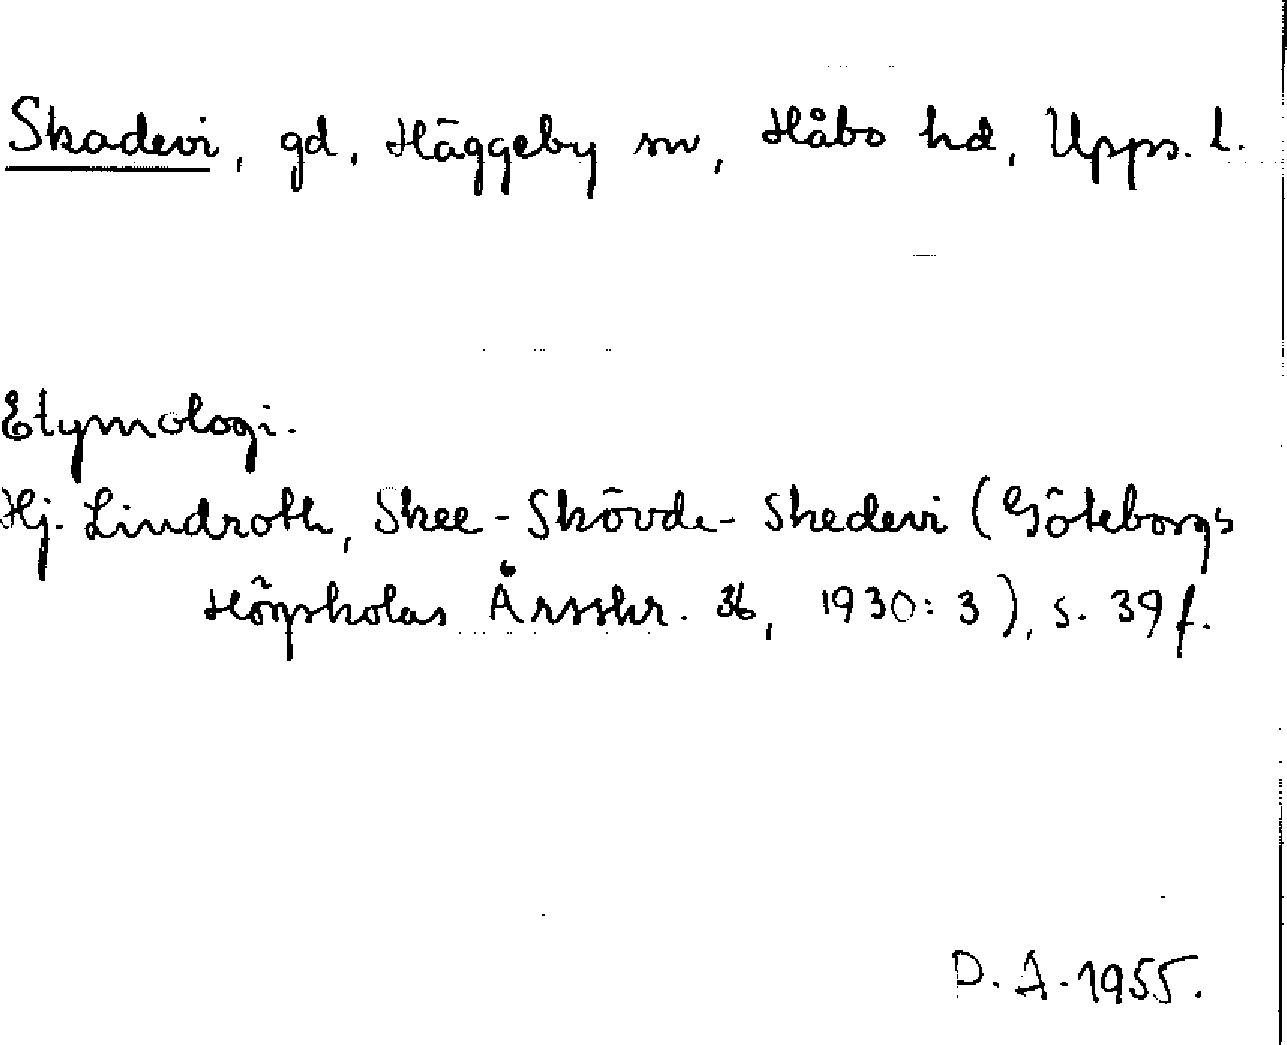 Skadevi, gd, Häggeby sn, Håbo hd, Upps. l.
Etymologi.
Hj. Lindroth, Skee-Skövde-Skedevi (Göteborgs
Högskolas Årsskr. 36, 1930:3), s. 39 f.
D. A. 1955.